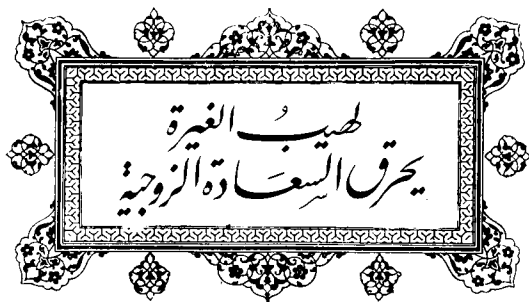 لهيبُ الغيرة
يحرق السعادة الزوجية